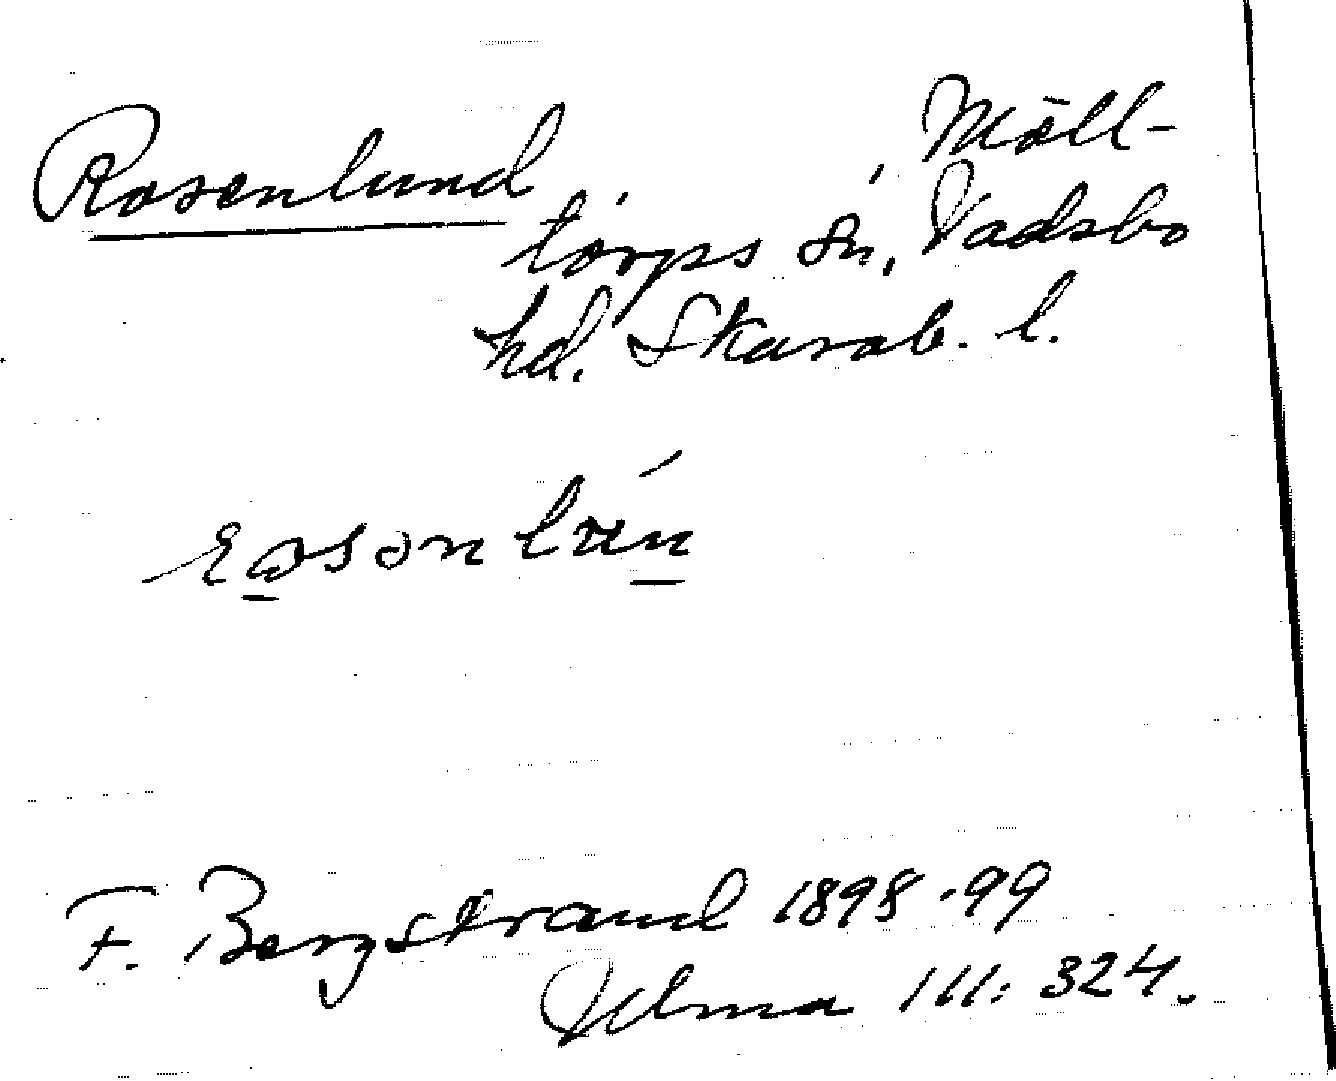 Rosenlund, Möll-
torps sn, Vadsbo
hd. Skarab. l.
F. Bergstrand 1898-99
Ulma 111: 324.